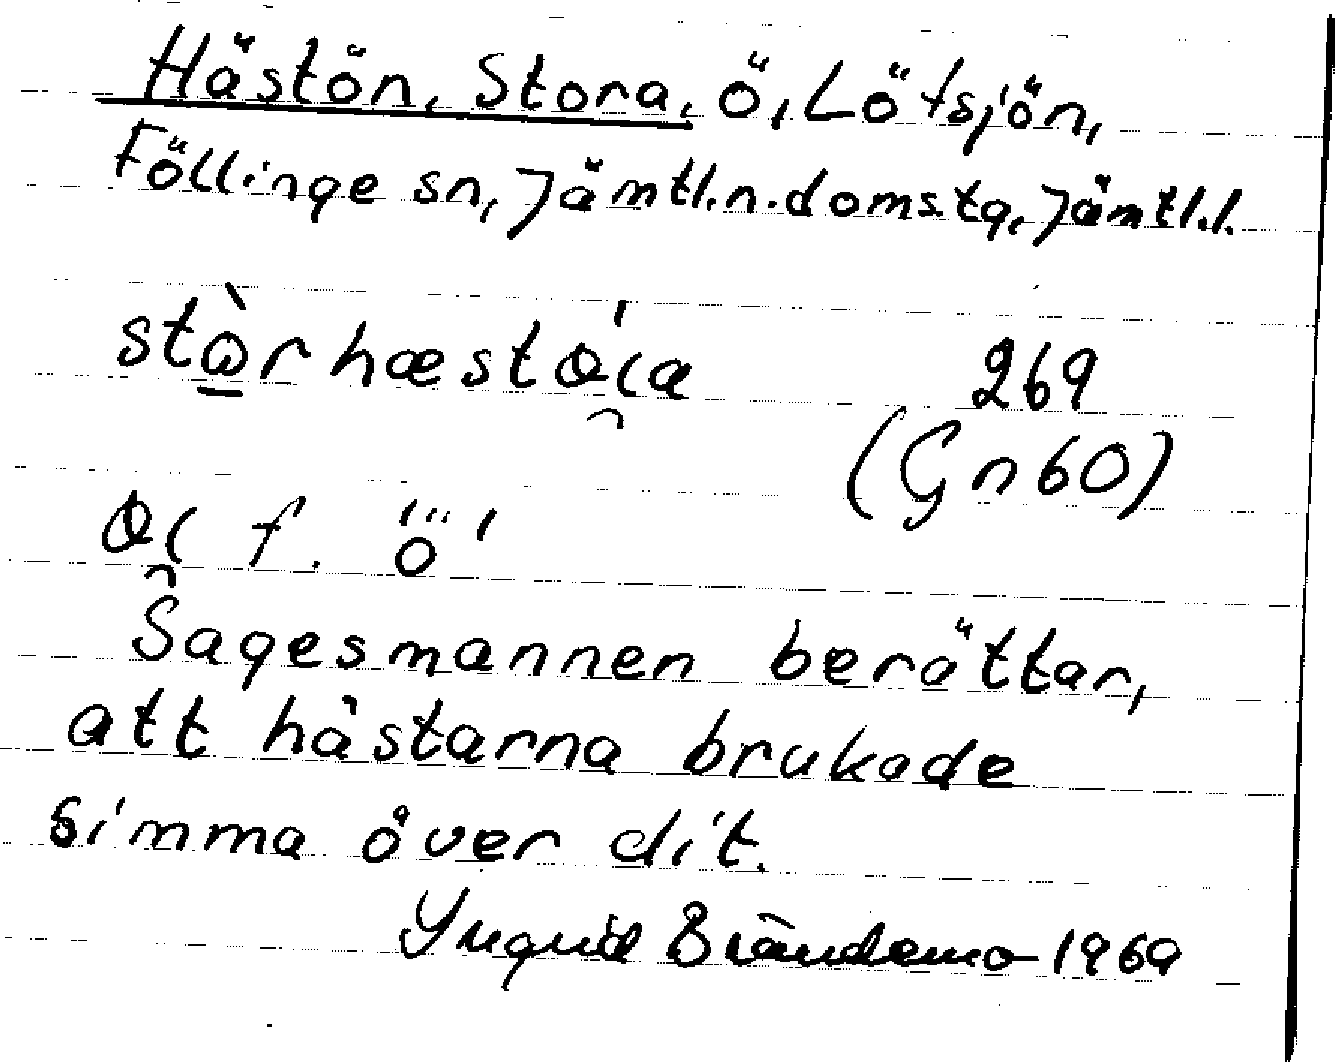 Hästön, Stora, ö, Lötsjön,
Föllinge sn, Jämtl.n.domstg, Jämtl.l.
269
(Gn 60)
f. "ö"
Sagesmannen berättar,
att hästarna brukade
simma över dit.
Yngvild Brändemo 1969